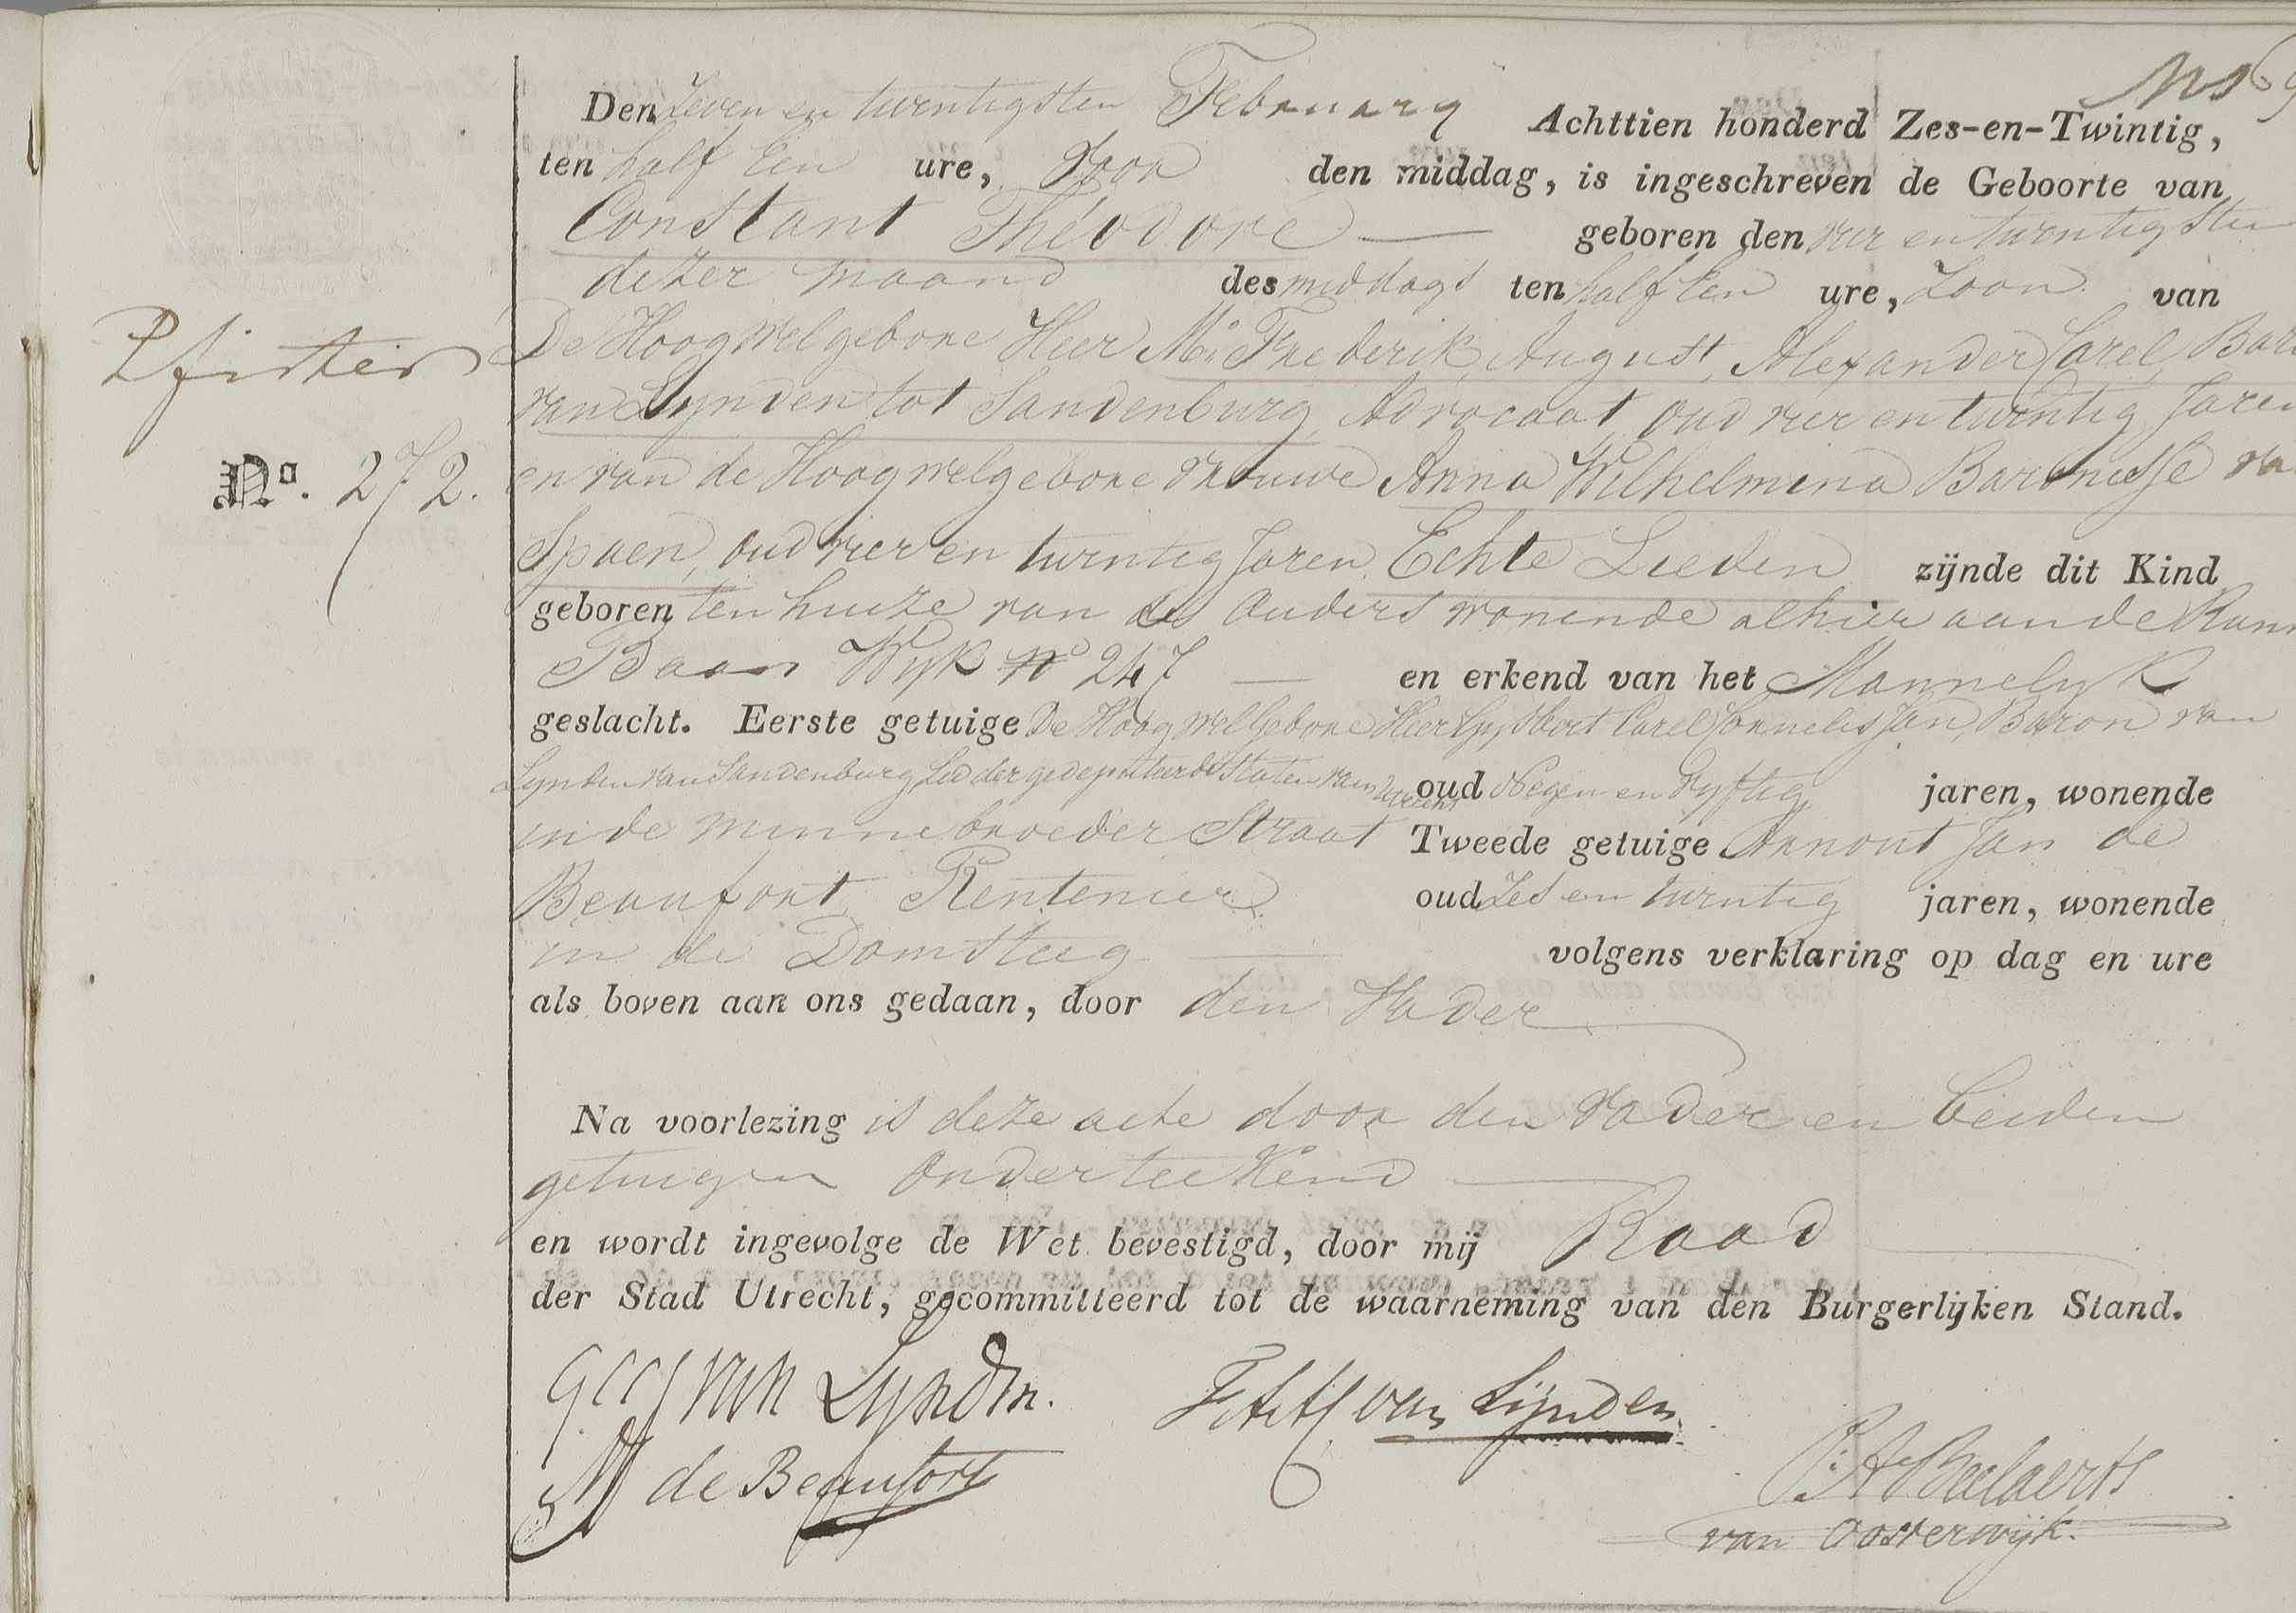 Den Zeven en twentigsten February Achttien honderd Zes-en-Twintig,
ten half Een ure, voor den middag, is ingeschreven de Geboorte van
Constant Théodore geboren den vier en twentigsten
dezer maand des middags ten half Een ure, Zoon van
De Hoog Welgebore Heer Mr. Frederik, August, Alexander Carel, Bar
van Lynden tot Sandenburg, Advocaat, oud vier en twentig Jaren
en van de Hoog welgebore Vrouwe Anna Wilhelmina Baronesse va
Spaen, oud vier en twentig Jaren, Echte Lieden zijnde dit Kind
geboren ten huize van de Ouders wonende alhier aan de
Baan Wyk No 247 en erkend van het Mannelyk
geslacht. Eerste getuige De Hoog Wel Gebore Heer Gysbert Carel Cornelis Jan, Baron van
Lynden van Sandenburg Lid der gedeputeerde Staten van Utrecht oud Negen en Vyftig jaren, wonende
in de minnebroeder Straat Tweede getuige Arnout Jan de
Beaufort, Rentenier oud Zes en twentig jaren, wonende
in de Domsteeg volgens verklaring op dag en ure
als boven aan ons gedaan, door den Vader
Na voorlezing is deze acte door den Vader en beiden
getuigen onderteekend
en wordt ingevolge de Wet bevestigd, door mij Raad
der Stad Utrecht, gecommitteerd tot de waarneming van den Burgerlijken Stand.
Pfisters
No. 272.
GCCJ van Lynden.
FAAC van Lijnden
AJ de Beaufort
Beelaerts
van Oosterwijk.